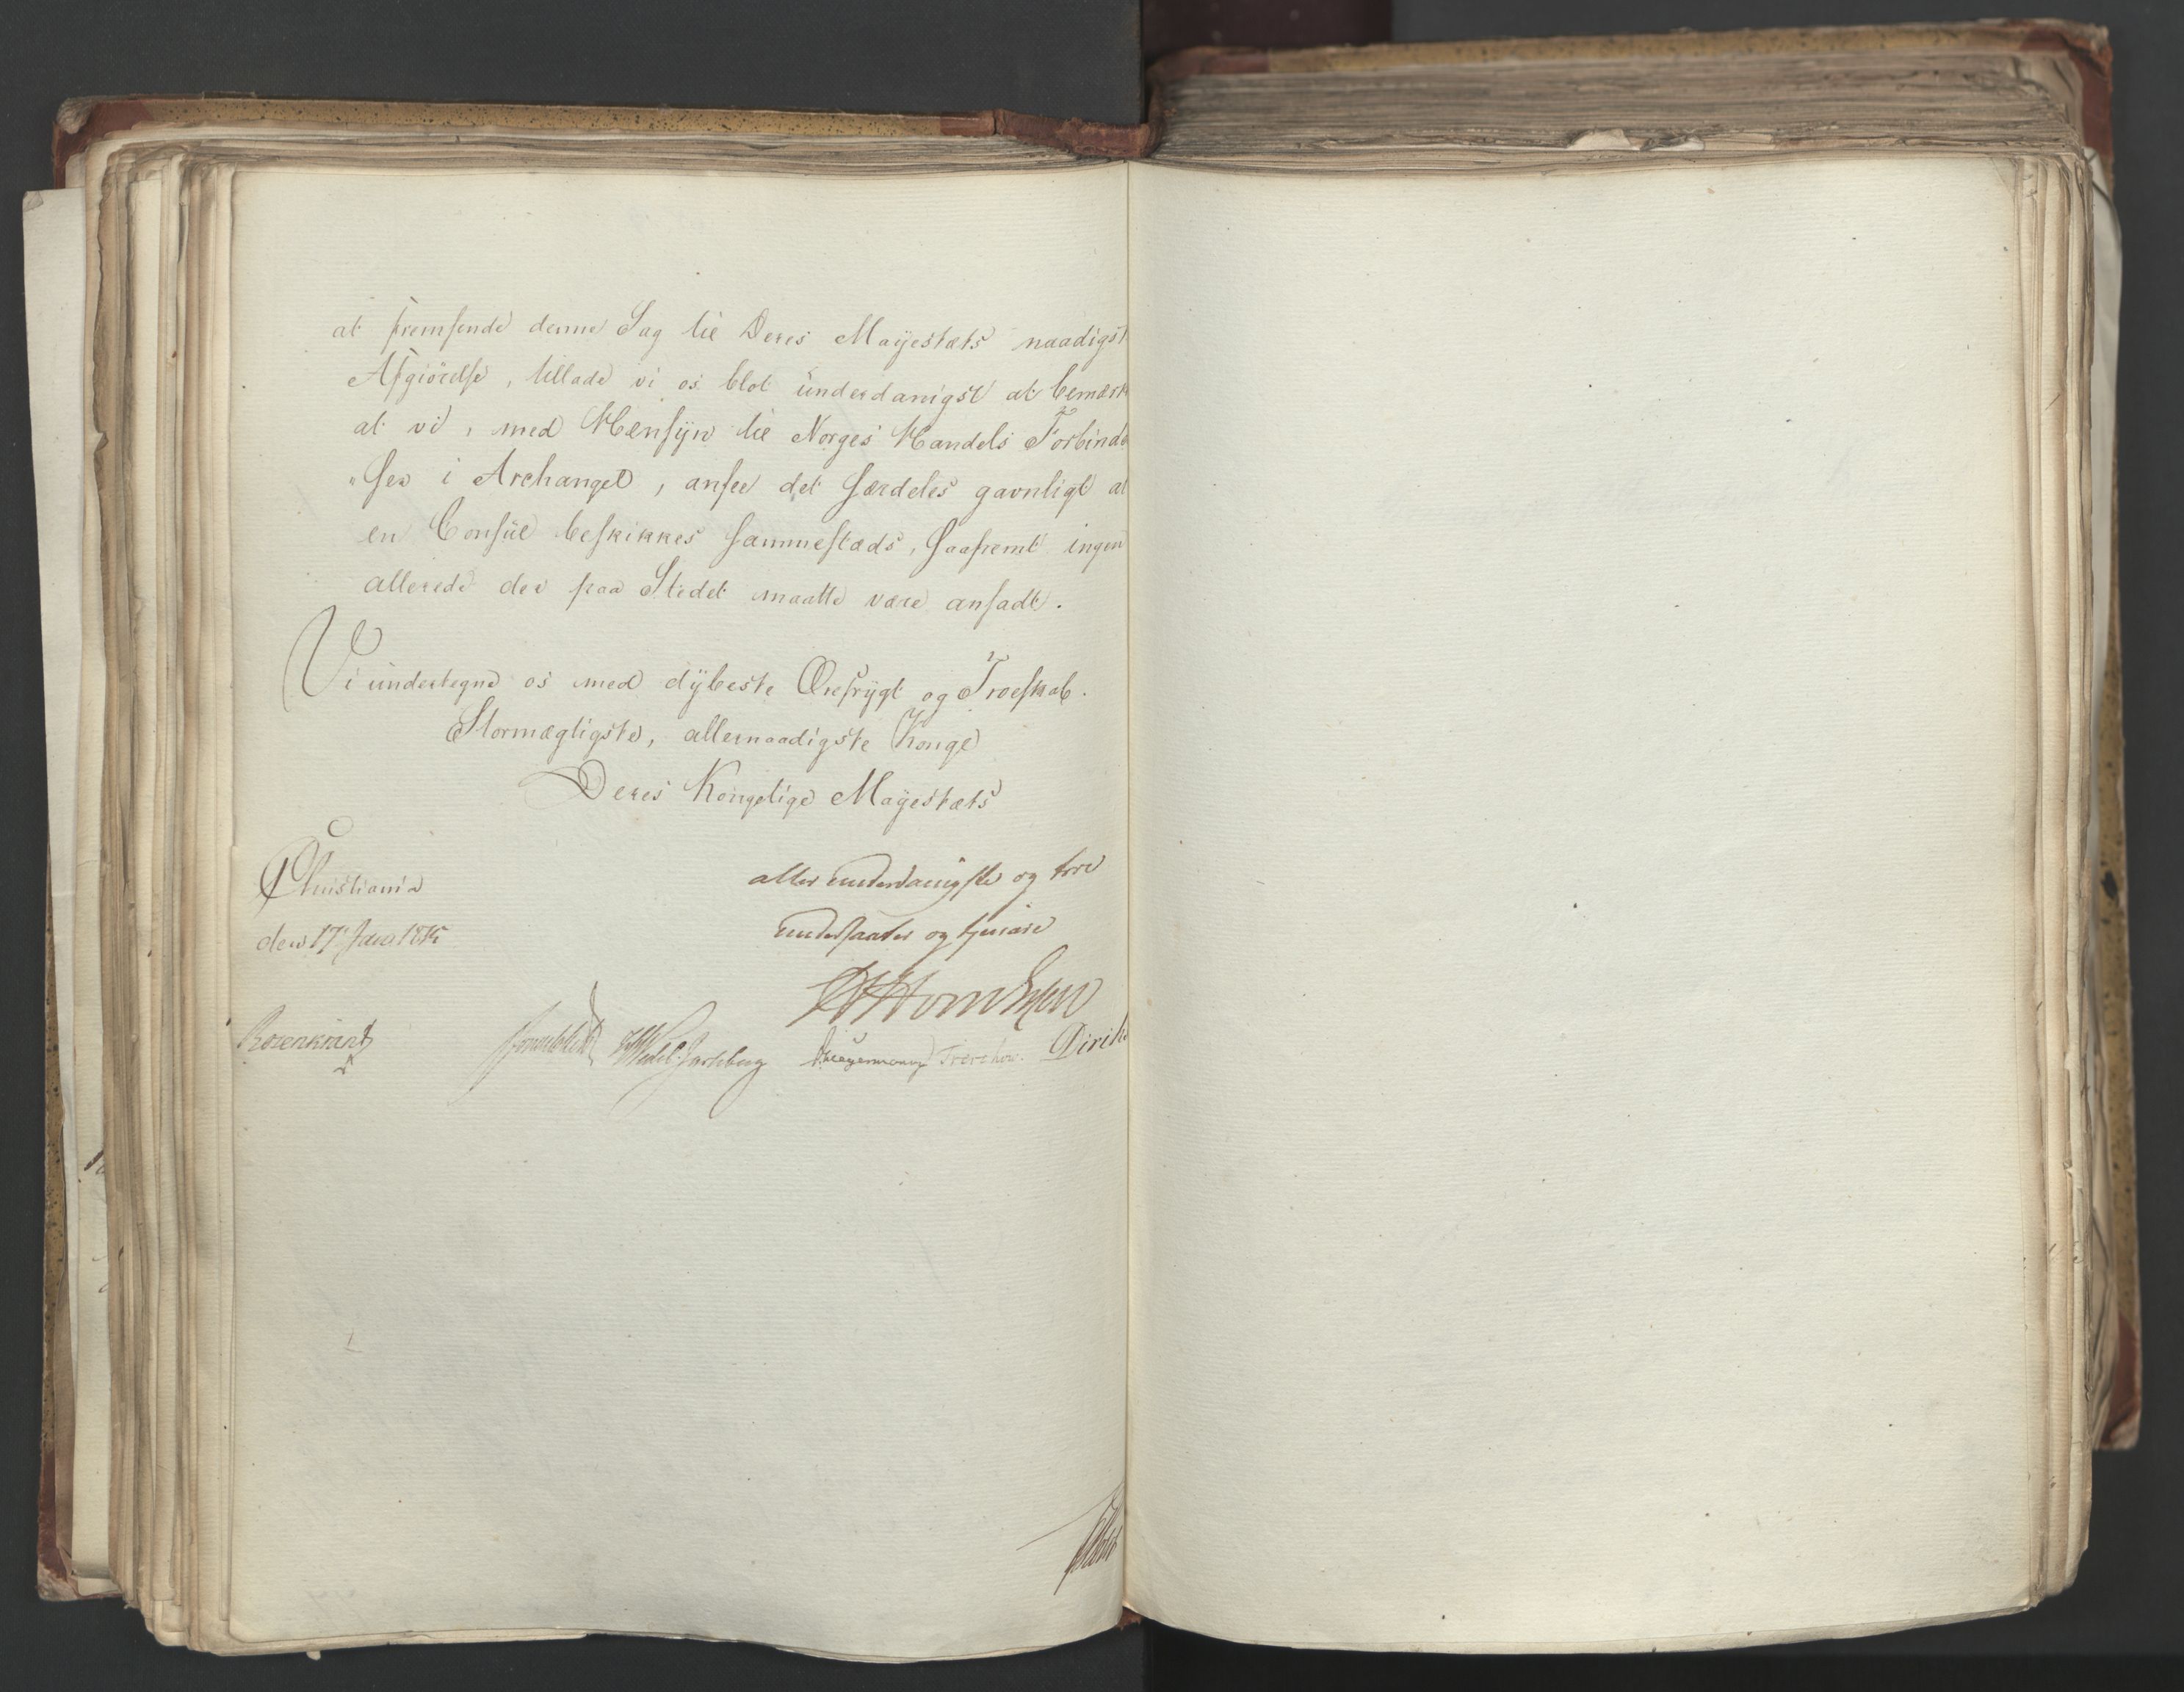 at fremsende denne Sag til Deres Mayestæts naadigst
Afgiörelse, tillade vi os blot underdanigst at bemærk
at vi, med Hensÿn til Norges Handels Forbinde
"ser i Archangel, ansee det særdeles gavnligt at
en Consul beskikkes sammestæds, saafremt ingen
allerede der paa Stedet maatte være ansadt.
Vi undertegne os med dÿbeste Ærefrÿgt og Troeskab.
Stormægtigste, allernaadigste Konge
Deres Kongelige Mayestæts
Christiania
allerunderdanigste og troe
den 17 Jan 1815
undersaatter og tjenere
Rosenkrantz
Sommerhielm
Wedel-Jarlsberg
Hegermann
Treschow.
Dirik